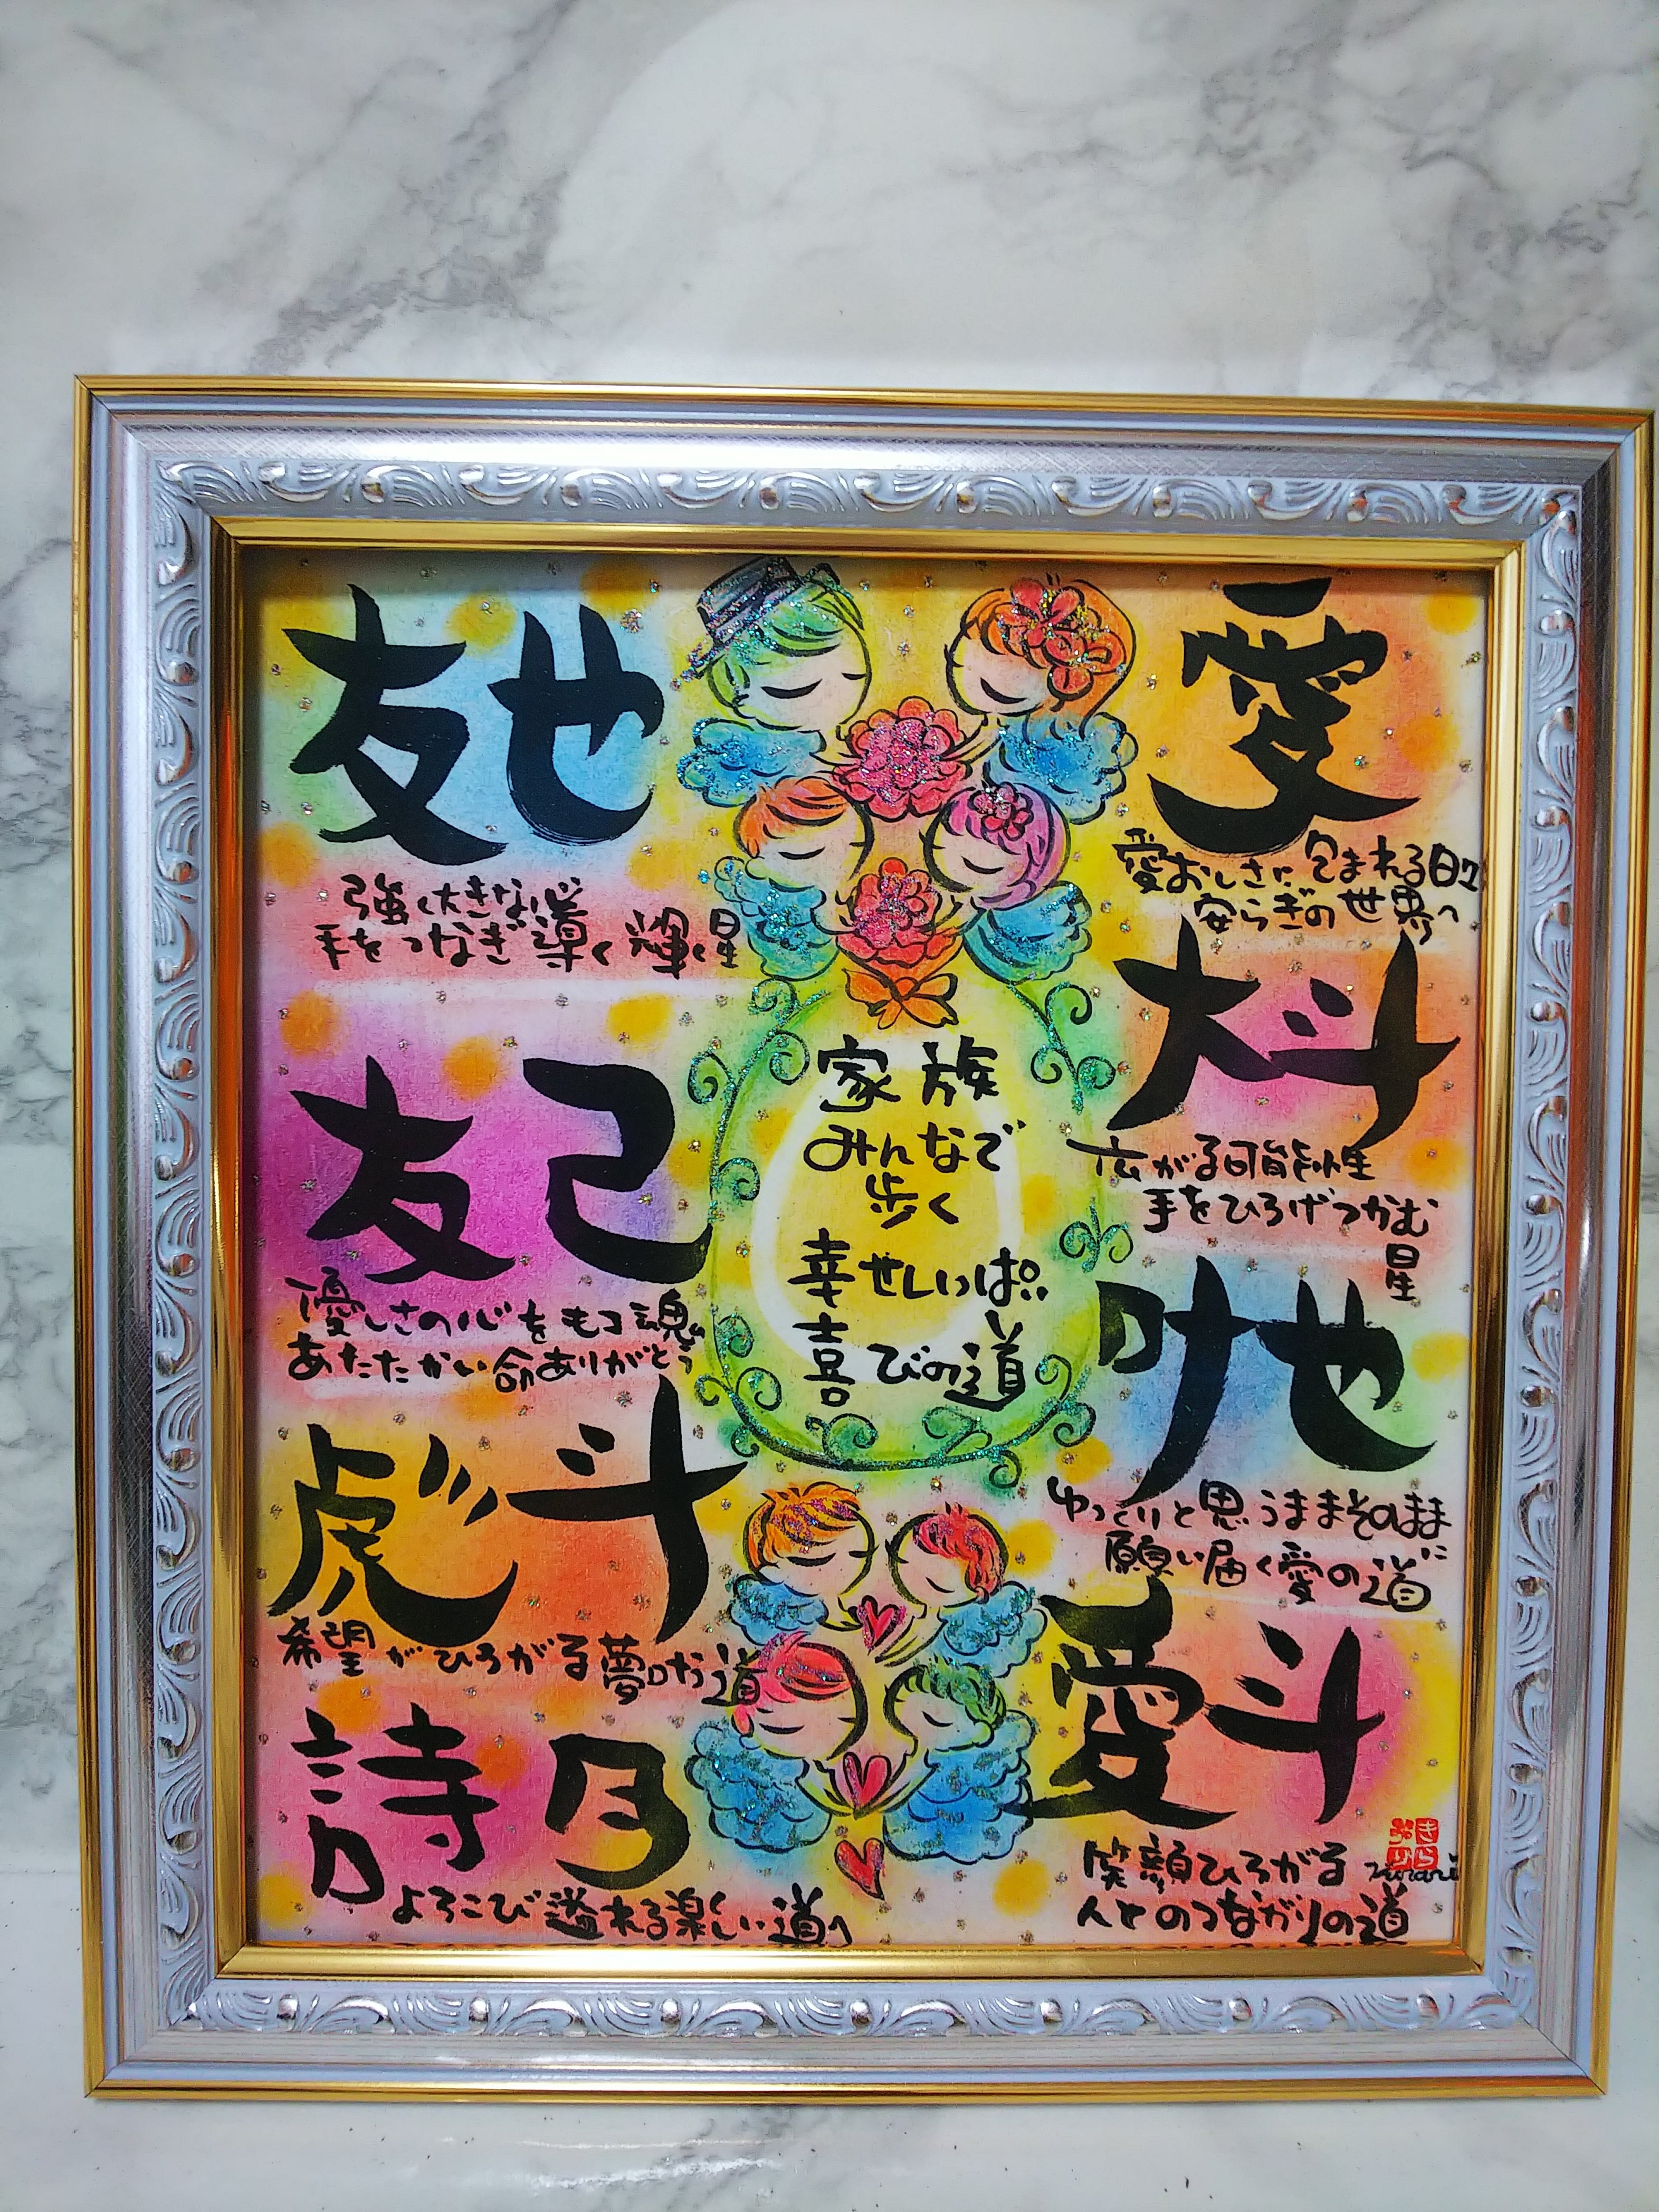 愛
愛おしさに包まれる日々
安らぎの世界へ
大斗
広がる可能性
手をひろげつかむ
星
叶也
ゆっくりと思うままそのままに
願い届く愛の道
愛斗
笑顔ひろがる
人とのつながりの道
家族
みんなで
歩く
幸せいっぱい
喜びの道
友也
強く大きな心
手をつなぎ導く輝く星
友己
優しさの心をもつ魂
あたたかい命ありがとう
虎斗
希望がひろがる夢の道
詩月
よろこび溢れる楽しい道へ